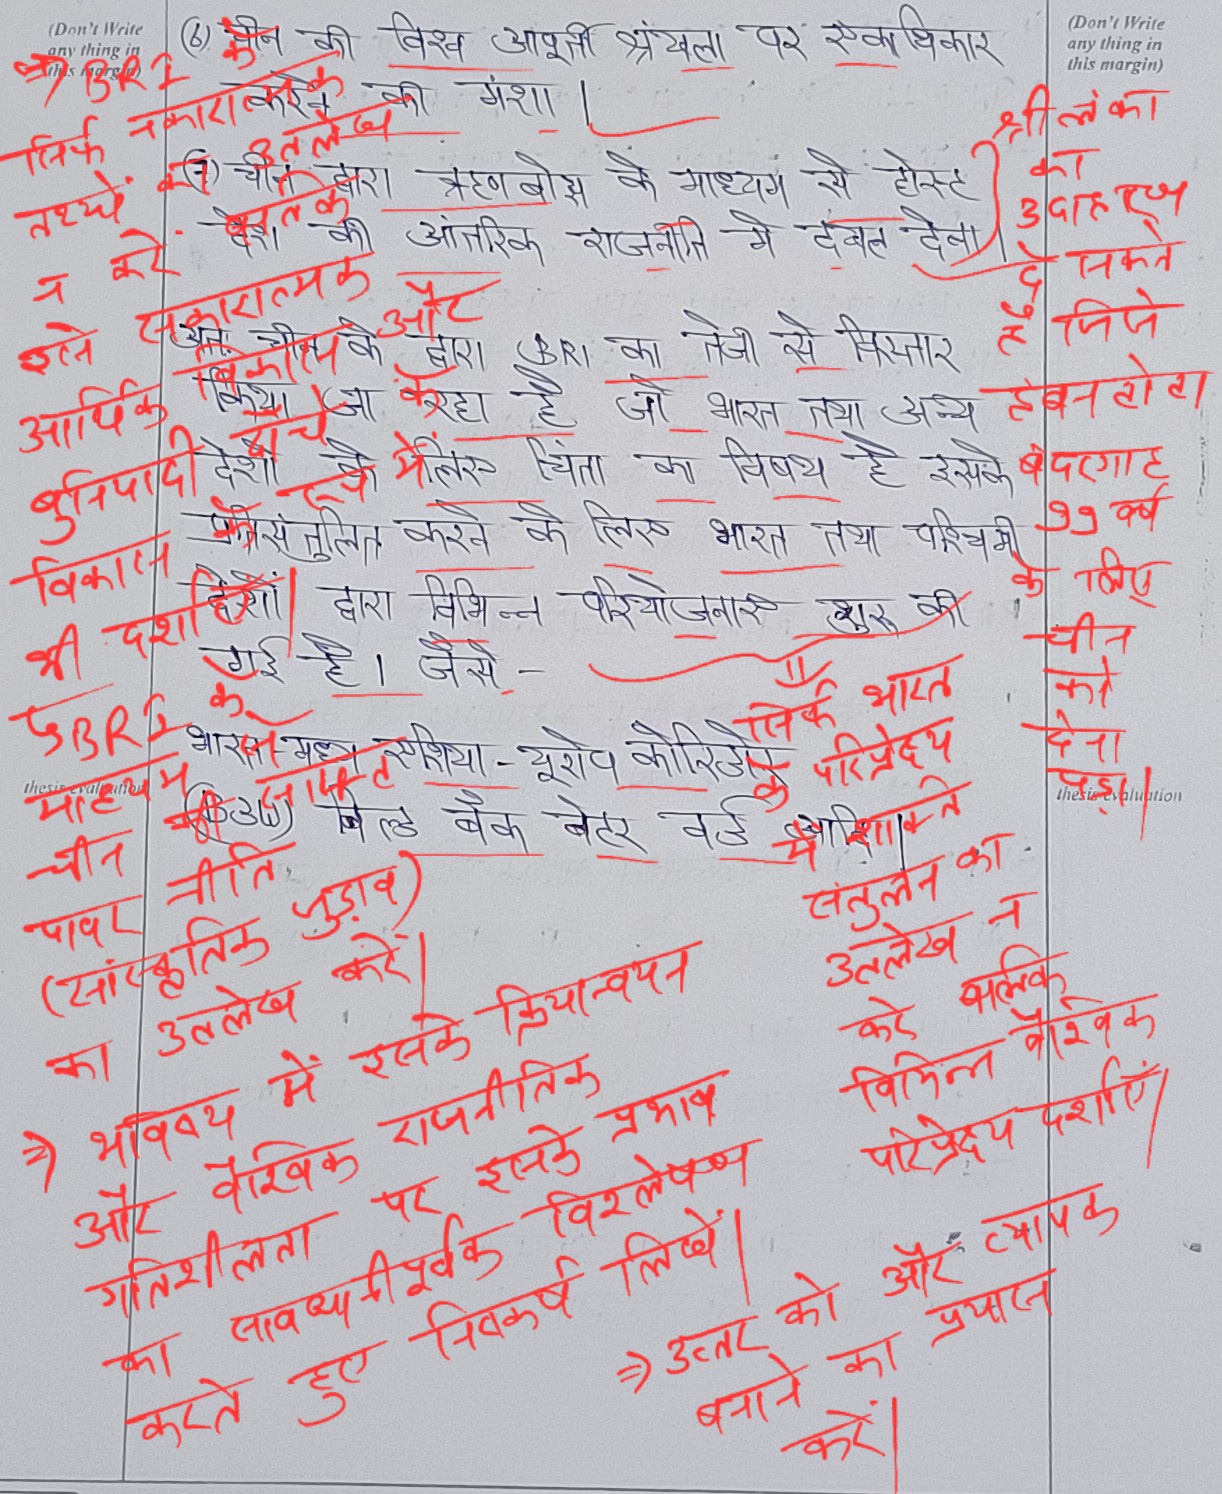 (Don't Write
any thing in
this margin)
(Don't Write
any thing in
this margin)
(6) चीन की विश्व आपूर्ती श्रंखला पर एकाधिकार
करने की मंशा।
(7) चीन द्वारा ऋणबोझ के माध्यम से होस्ट
देश की आंतरिक राजनीति मे दखल देना।
अतः चीन के द्वारा BRI का तेजी से विस्तार
किया जा रहा है जो भारत तथा अन्य
देशों के लिए चिंता का विषय है इसके
प्रतिसंतुलित करने के लिए भारत तथा पश्चिमी
देशों द्वारा विभिन्न परियोजनाए शुरू की
गई है। जैसे -
भारत-मध्य एशिया - यूरोप कोरिडोर
(B3W) बिल्ड बैक बेटर वर्ड आदि।
thesis evaluation
thesis evaluation
=> BRI के
सिर्फ नकारात्मक
तथ्यों का उल्लेख
न करें बल्कि
इसे सकारात्मक
आर्थिक विकास और
बुनियादी ढाँचे के
विकास के रूप में
भी दर्शाएँ।
↳ BRI के
माध्यम से
चीन की सॉफ्ट
पावर नीति
(सांस्कृतिक जुड़ाव)
का उल्लेख करें।
=> भविष्य में इसके क्रियान्वयन
और वैश्विक राजनीतिक
गतिशीलता पर इसके प्रभाव
का सावधानीपूर्वक विश्लेषण
करते हुए निष्कर्ष लिखें।
श्रीलंका
का
उदाहरण
दे सकते
हैं जिसे
हंबनटोटा
बंदरगाह
99 वर्ष
के लिए
चीन
को
देना
पड़ा।
सिर्फ भारत
के परिप्रेक्ष्य
में शक्ति
संतुलन का
उल्लेख न
करें बल्कि
विभिन्न वैश्विक
परिप्रेक्ष्य दर्शाएँ।
=> उत्तर को और व्यापक
बनाने का प्रयास
करें।